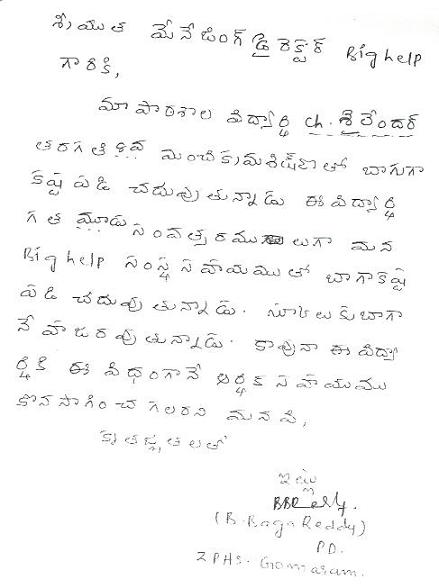 శ్రీయుత మేనేజింగ్ డైరెక్టర్ Big help
గారికి,
మా పాఠశాల విద్యార్థి ch. శైలేందర్
తరగతి 8వ మంచి క్రమశిక్షణతో బాగుగా
కష్టపడి చదువుతున్నాడు ఈ విద్యార్థి
గత మూడు సంవత్సరములుగా మన
Big help సంస్థ సహాయముతో బాగా కష్ట
పడి చదువుతున్నాడు. స్కూలుకు బాగా
నే హాజరవుతున్నాడు. కావునా ఈ విద్యా
ర్థికి ఈ విధంగానే ఆర్థిక సహాయము
కొనసాగించగలరని మనవి,
కృతజ్ఞతలతో
ఇట్లు
(B. Baga Reddy)
PD.
ZPHS. Gomaram.